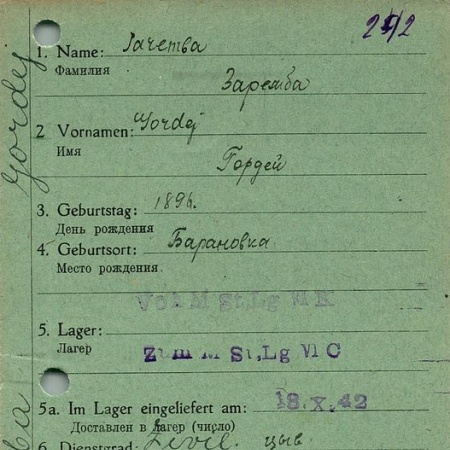 2512
1. Name:
Фамилия
Заремба
2 Vornamen: Gordej
Имя
Гордей
3. Geburtstag: 1896.
День рождения
4. Geburtsort: Барановка
Место рождения
Vom M St.Lg VI K
5. Lager:
Лагер
Zum M St.Lg VI C
5a. Im Lager eingeliefert am: 18.X.42
Доставлен в лагер (число)
6. Dienstgrad: Zivil. цыв.
Gordej